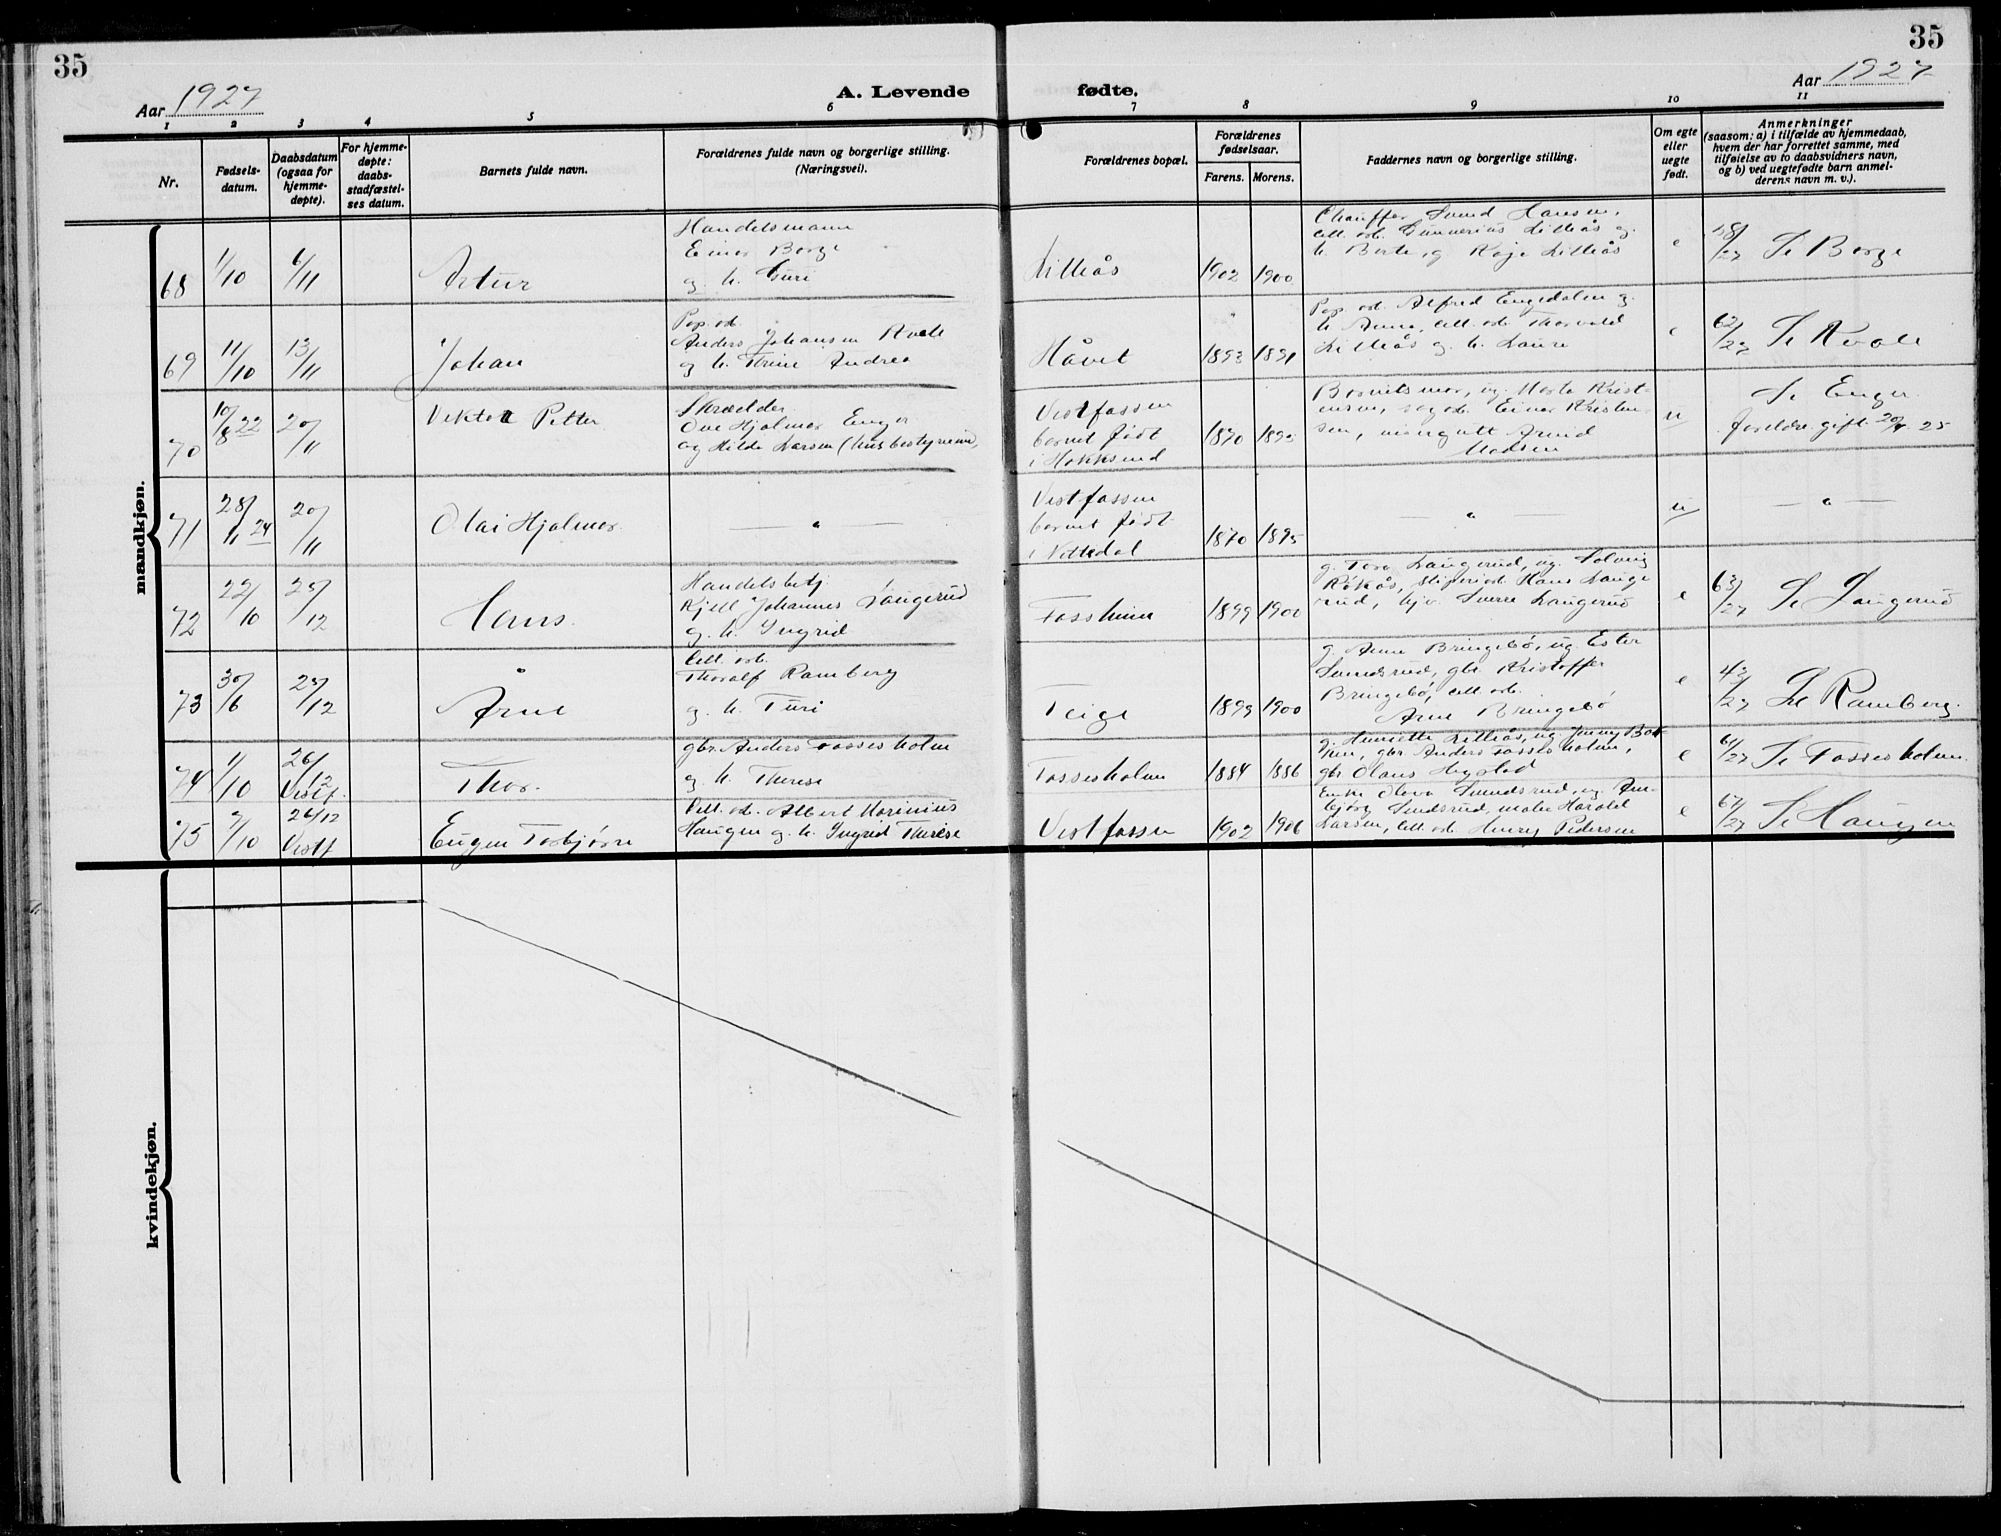 35
35
Aar 1927
A. Levende fødte.
Aar 1927
1 2 3 4 5 6 7 8 9 10 11
Nr.
Fødsels-
datum.
Daabsdatum
(ogsaa for
hjemme-
døpte).
For hjemme-
døpte:
daabs-
stadfæstel-
ses datum.
Barnets fulde navn.
Forældrenes fulde navn og borgerlige stilling.
(Næringsvei).
Forældrenes bopæl.
Forældrenes
fødselsaar.
Farens. Morens.
Faddernes navn og borgerlige stilling.
Om egte
eller
uegte
født.
Anmerkninger
(saasom: a) i tilfælde av hjemmedaab,
hvem der har forrettet samme, med
tilføielse av to daabsvidners navn,
og b) ved uegtefødte barn anmel-
derens navn m. v.).
mandkjøn.
68 1/10 6/11 Artur
Handelsmann
Einar Borge
og h. Guri
Lilleås 1902 1900
Chauffør Svend Hansen,
cell. arb. Gunnerius Lilleås og
h. Berte, g. Kaja Lilleås
e
58/27 Se Borge
69 11/10 13/11 Johan
Pap. arb.
Anders Johansen Kvale
og h. Trine Andrea
Håvet 1893 1891
Pap. arb. Alfred Engedalen og
h. Anna, cell. arb. Thorvald
Lilleås og h. Laura
e
62/27 Se Kvale
70 10/8 22 20/11 Viktor Petter
Skrædder
Ove Hjalmar Enger
og Hilda Larsen (husbestyrerinne)
Vestfossen
barnet født
i Hokksund
1870 1895
Barnets mor, ug. Marta Krist-
ensen, sagarb. Einar Kristen-
sen, ungutt Arvid
Madsen
u
Se Enger.
foreldre gift 20/4 25
71 28/11 24 20/11 Olai Hjalmar
— " —
Vestfossen
barnet født
i Nittedal
1870 1895
— " —
u
— " —
72 22/10 25/12 Hans.
Handelsbetj.
Kjell Johannes Langerud
og h. Ingrid
Fossheim 1899 1900
g. Tora Langerud, ug. Solveig
Røkås, sliperiarb. Hans Lange
rud, hjv. Sverre Langerud
e
63/27 Se Langerud
73 30/6 25/12 Arne
Cell. arb.
Thoralf Ramberg
og h. Turi
Teige 1899 1900
g. Anna Bringebø, ug Ester
Sundsrud, gbr. Kristoffer
Bringebø, cell. arb.
Arne Bringebø
e
43/27 Se Ramberg.
74 1/10 26/12 Vestf. Thor.
gbr. Anders Fossesholm
og h. Therese
Fossesholm 1884 1886
g. Henriette Lilleås, ug Jenny
gbr Anders Fossesholm,
gbr Olaus Hegstad
e
61/27 Se Fossesholm.
75 9/10 26/12 Vestf Eugen Torbjørn
Cell. arb. Albert Marinius
Haugen og h. Ingrid Therese
Vestfossen 1902 1906
Enke Oleva Sundsrud, ug An-
bjørg Sundsrud, maler Harald
Larsen, cell. arb Henry Pedersen
e
67/27 Se Haugen
kvindekjøn.